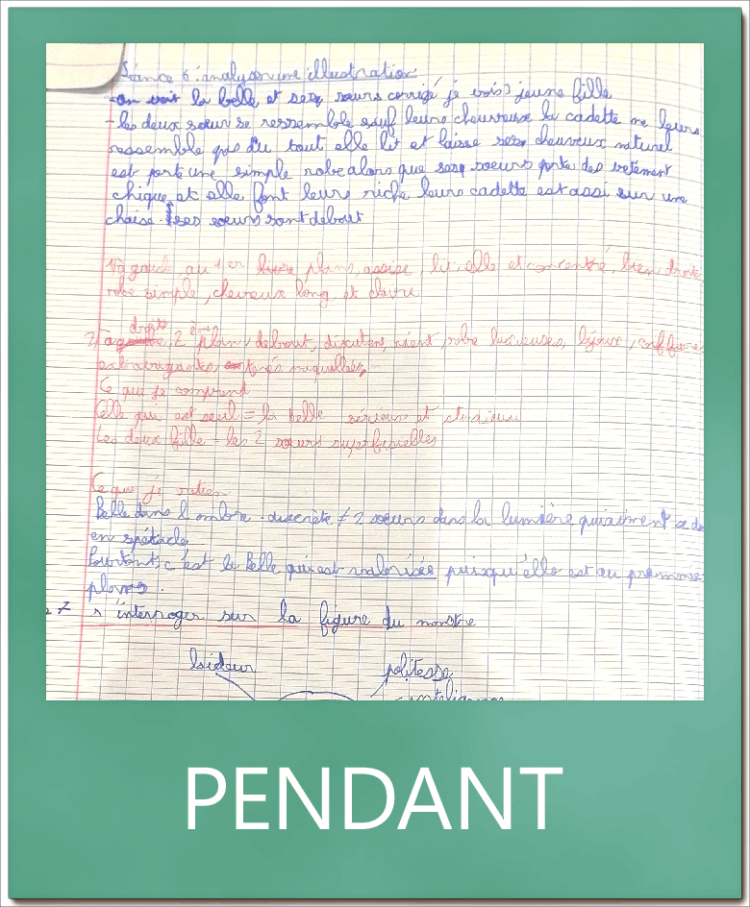 Séance 6 : analyser une illustration
on voit la belle et ses sœurs corrigé je vois 3 jeune fille
- les deux sœur se ressemble sauf leurs cheveux la cadette ne leurs
ressemble pas du tout elle lit et laisse ses cheveux naturel
est porte une simple robe alors que ses sœurs porte des vetement
chique et elle font leurs riche leurs cadette est assi sur une
chaise. ses sœurs sont debout
1) à gauche, au 1er plans, assise, lit, elle et concentré, bien droite
robe simple, cheveux long et claire
2) à droite, 2 ème plan, debout, discutent, rient robe luxueuses, bijoux, coiffures
extravagantes très maquillées
Ce que je comprend
Celle qui est seul = la belle serieuse et
Les deux fille = les 2 sœurs superficielles
Ce que je retien
Belle dans l'ombre - discrète ≠ 2 sœurs dans la lumière qui aiment se do
en spéctacle
Pourtant, c'est la Belle qui est valorisée puisqu'elle est au premier
plans.
7 s'interroger sur la figure du monstre
laideur politesse
PENDANT